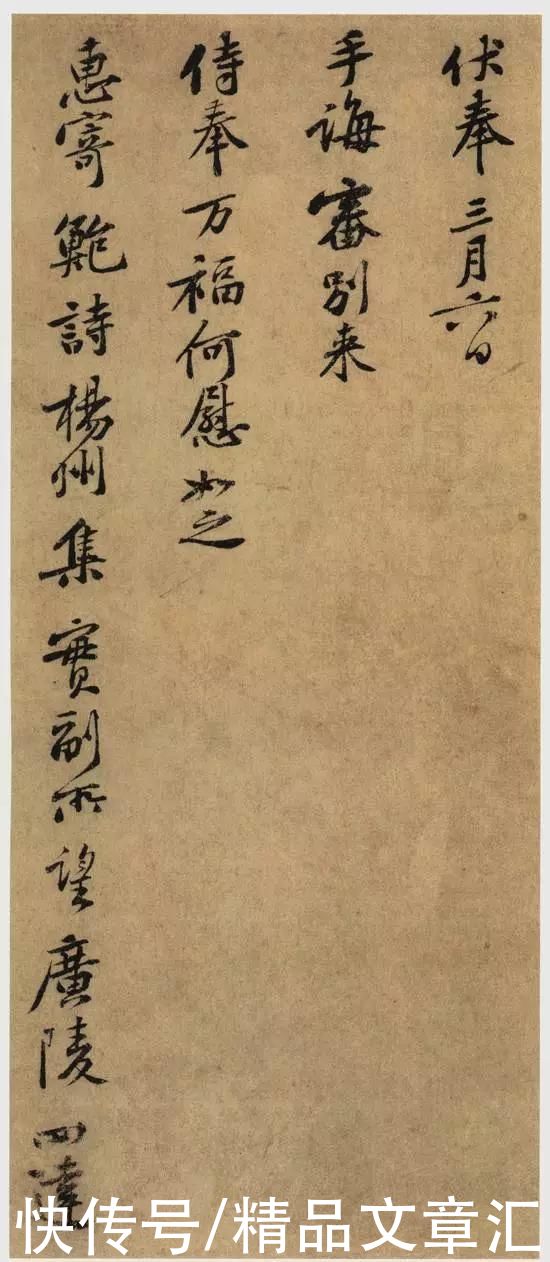 伏奉三月六日
手誨審別来
侍奉万福何慰如之
惠寄鮑詩楊州集實副所望廣陵四達
快传号/精品文章汇